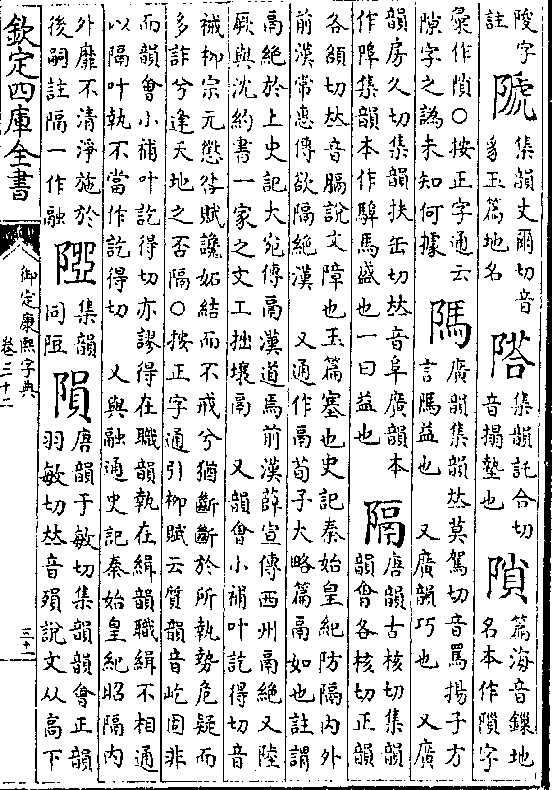 陖字
註
集韻丈爾切音
豸玉篇地名
集韻託合切
音搨墊也
篇海音鏁地
名本作字
彙作隕○按正字通云
隙字之譌未知何據
䧞
廣韻集韻𠀤莫駕切音罵揚子方
言䧞益也 又廣韻巧也 又廣
韻房久切集韻扶缶切𠀤音阜廣韻本
作集韻本作馬盛也一曰益也
隔
唐韻古核切集韻
韻會各核切正韻
各額切𠀤音膈說文障也玉篇塞也史記秦始皇紀防隔內外
前漢常惠傳欲隔絶漢 又通作鬲荀子大略篇鬲如也註謂
鬲絶於上史記大宛傳鬲漢道焉前漢薛宣傳西州鬲絶又陸
厥與沈約書一家之文工拙壤鬲 又韻會小補叶訖得切音
祴柳宗元懲咎賦讒妬結而不戒兮猶斷斷於所執勢危疑而
多詐兮逢天地之否隔○按正字通引柳賦云質韻音屹固非
而韻會小補叶訖得切亦謬得在職韻執在緝韻職緝不相通
以隔叶執不當作訖得切 又與融通史記秦始皇紀昭隔內
外靡不清淨施於
後嗣註隔一作融
集韻
同陻
隕
唐韻于敏切集韻韻會正韻
羽敏切𠀤音殞說文从高下
欽定四庫全書
御定康熙字典
卷三十二
三十一